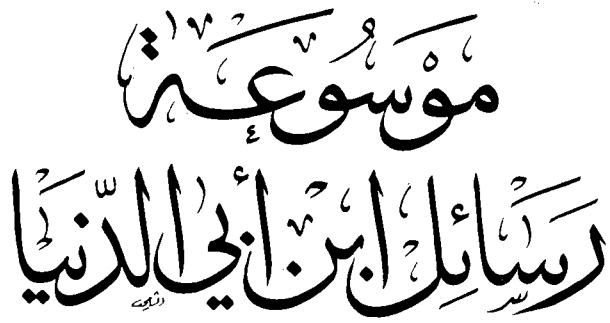 مَوْسُوعَة
رَسَائِل ابْن أَبِي الدّنيَا